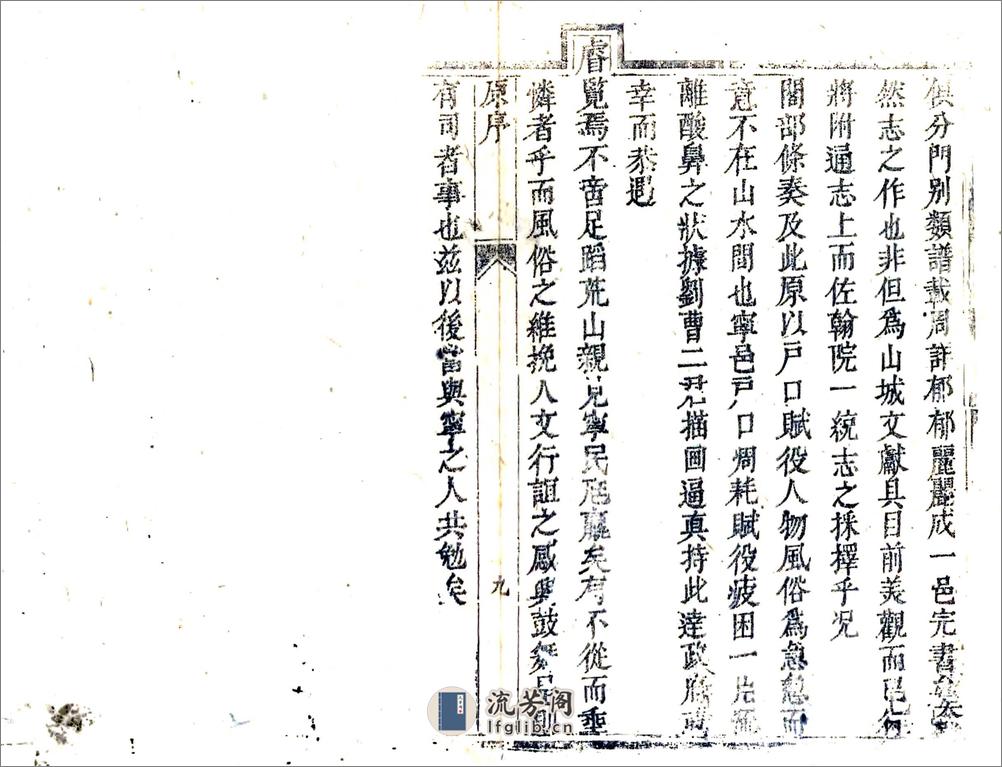 俱分門別類譜載周詳郁郁麗麗成一邑完書
然志之作也非但為山城文獻具目前美觀而已行
將附通志上而佐翰院一統志之採擇乎况
閣部條奏及此原以戶口賦役人物風俗為急慾而
意不在山水間也寧邑戶口凋耗賦役疲困一片
離酸鼻之狀據劉曹二君描画逼真持此達政府
幸而恭遇
睿
覽焉不啻足蹈荒山親見寧民尫羸矣有不從而垂
憐者乎而風俗之維挽人文行誼之感興鼓舞是則
原序
九
有司者事也茲以後當與寧之人共勉矣
流芳阁
lfglib.cn